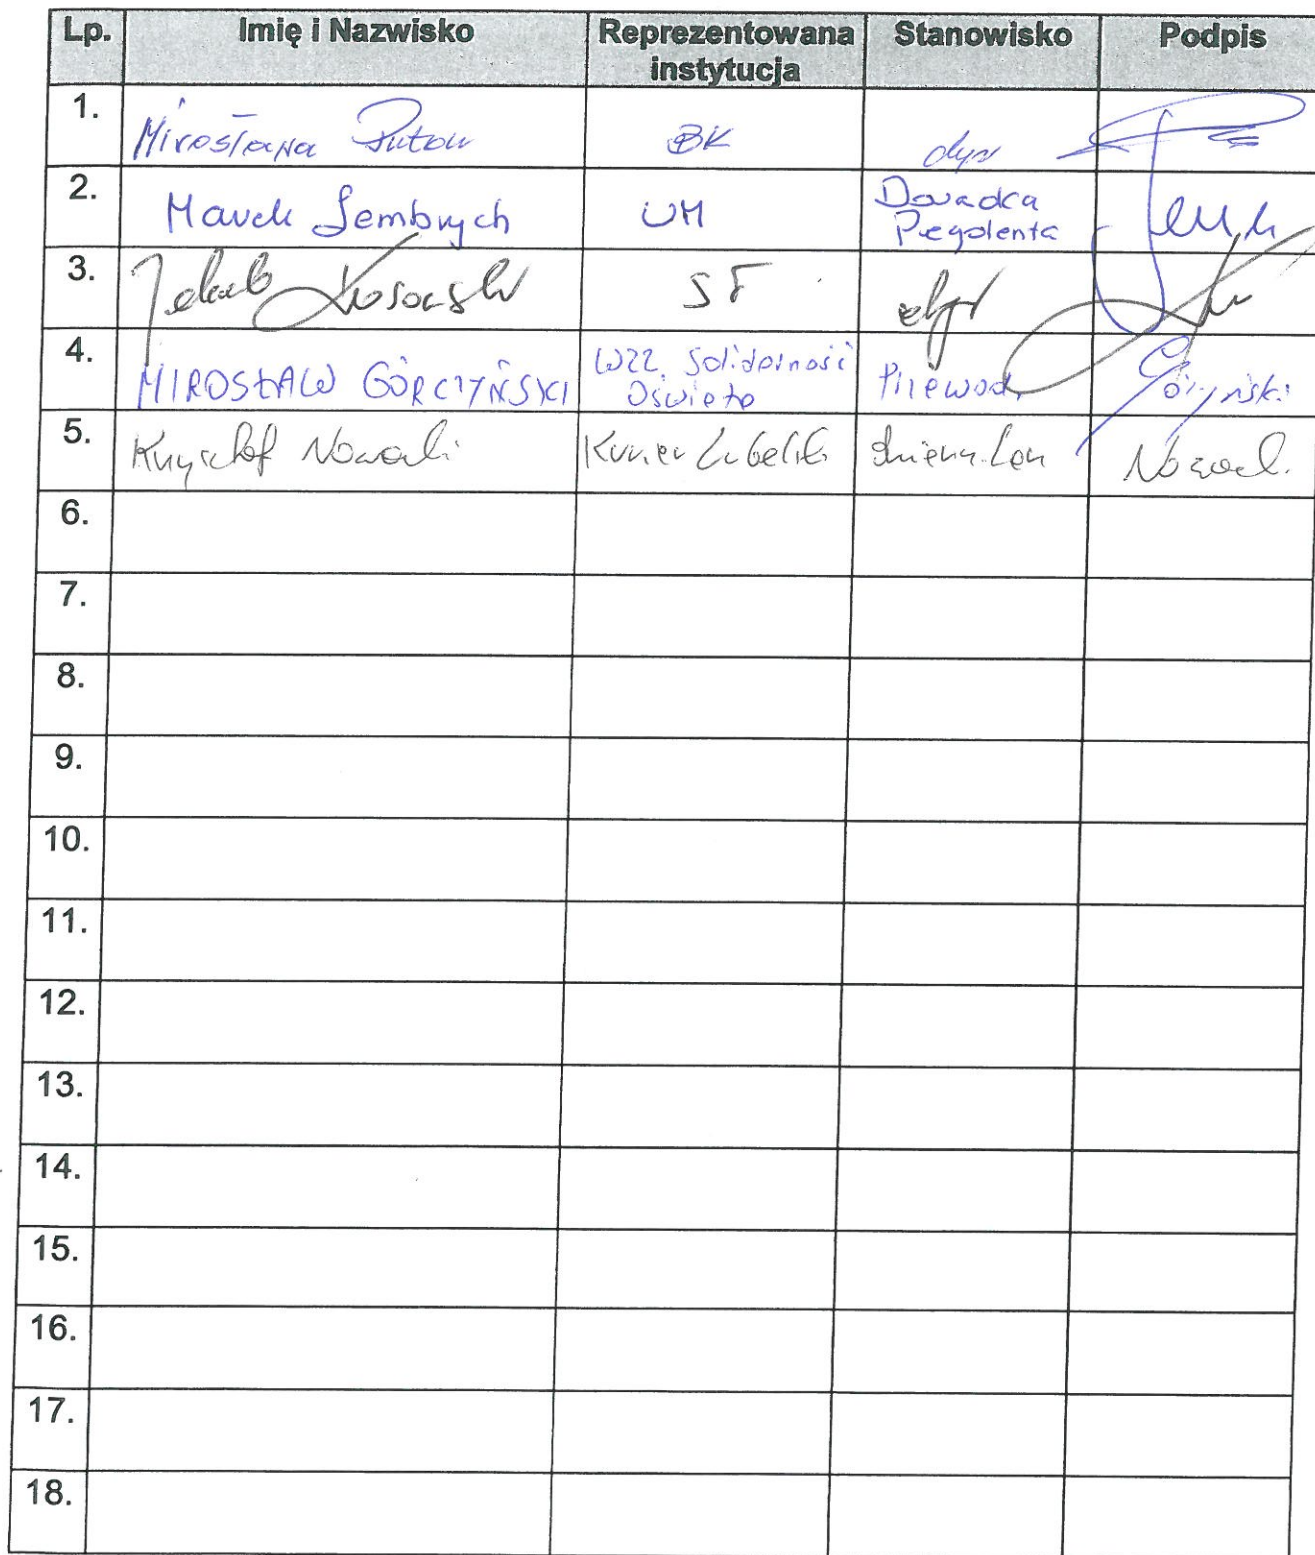 Lp. Imię i Nazwisko Reprezentowana instytucja Stanowisko Podpis
1. Mirosława Puton BK dyr
2. Marek Jembrych UM Doradca Prezydenta
3. Jakub Kosowski SF dyr
4. MIROSŁAW GÓRCZYŃSKI WZZ. Solidarność Oświata Przewod. Górczyński
5. Krzysztof Nowacki Kurier Lubelski dziennikarz
6.
7.
8.
9.
10.
11.
12.
13.
14.
15.
16.
17.
18.